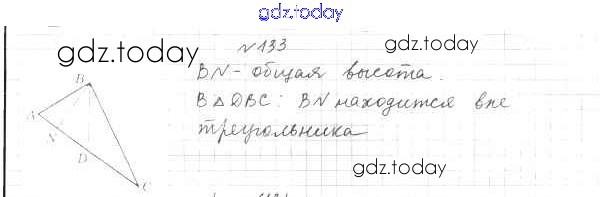 gdz.today
gdz.today
gdz.today
№133
BN - общая высота.
В △DBC: BN находится вне
треугольника
gdz.today
B
A
N
D
C